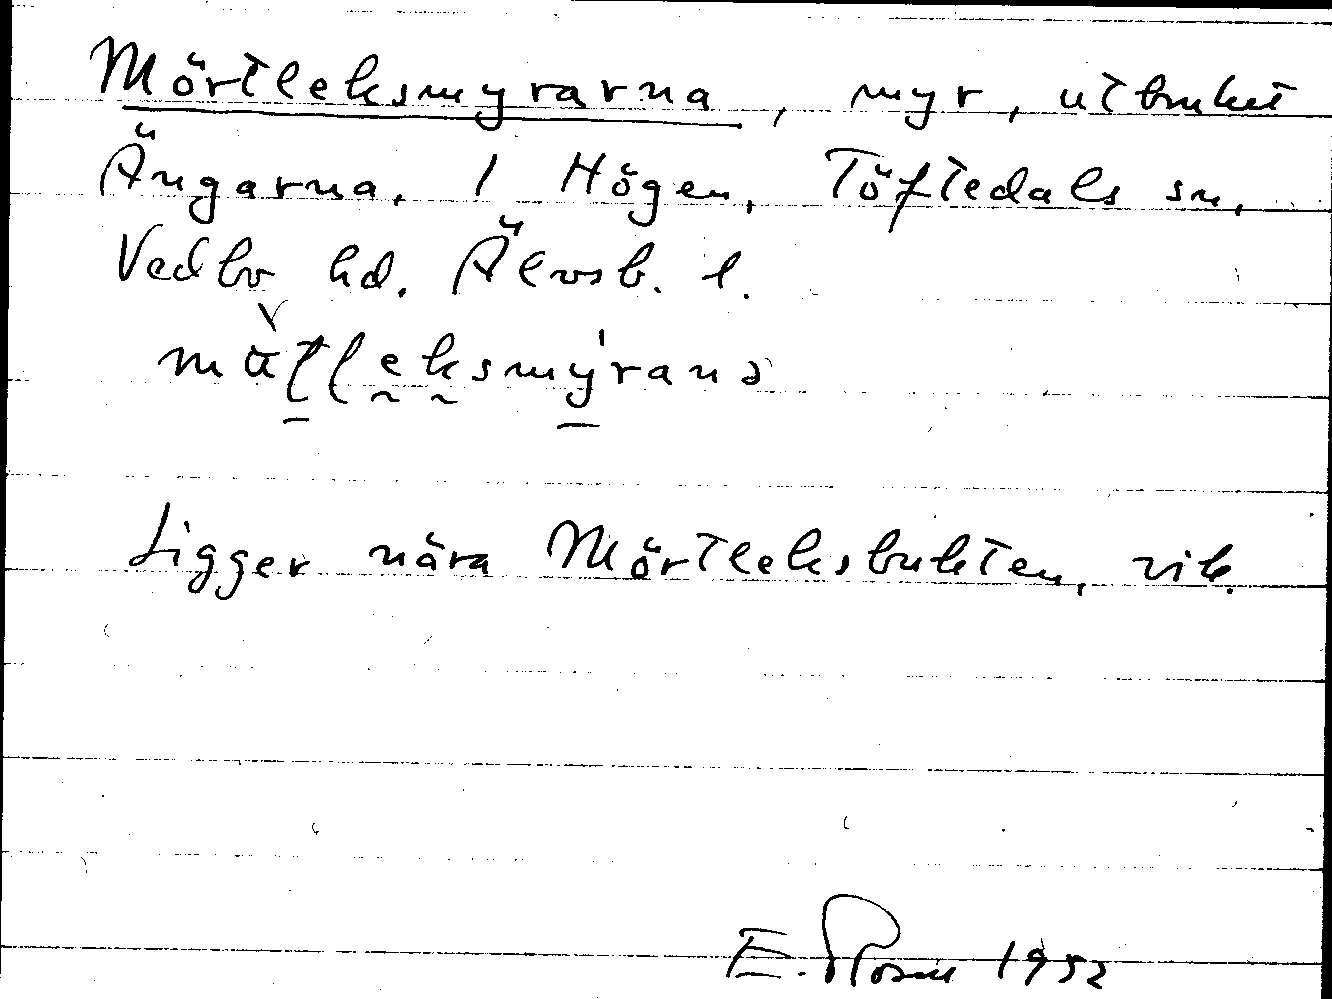 Mörtleksmyrarna, myr, utbruket
Ängarna, 1 Högen, Töftedals sn,
Vedbo hd. Älvsb. l.
Ligger nära Mörtleksbukten, vik.
E. Rosell 1952